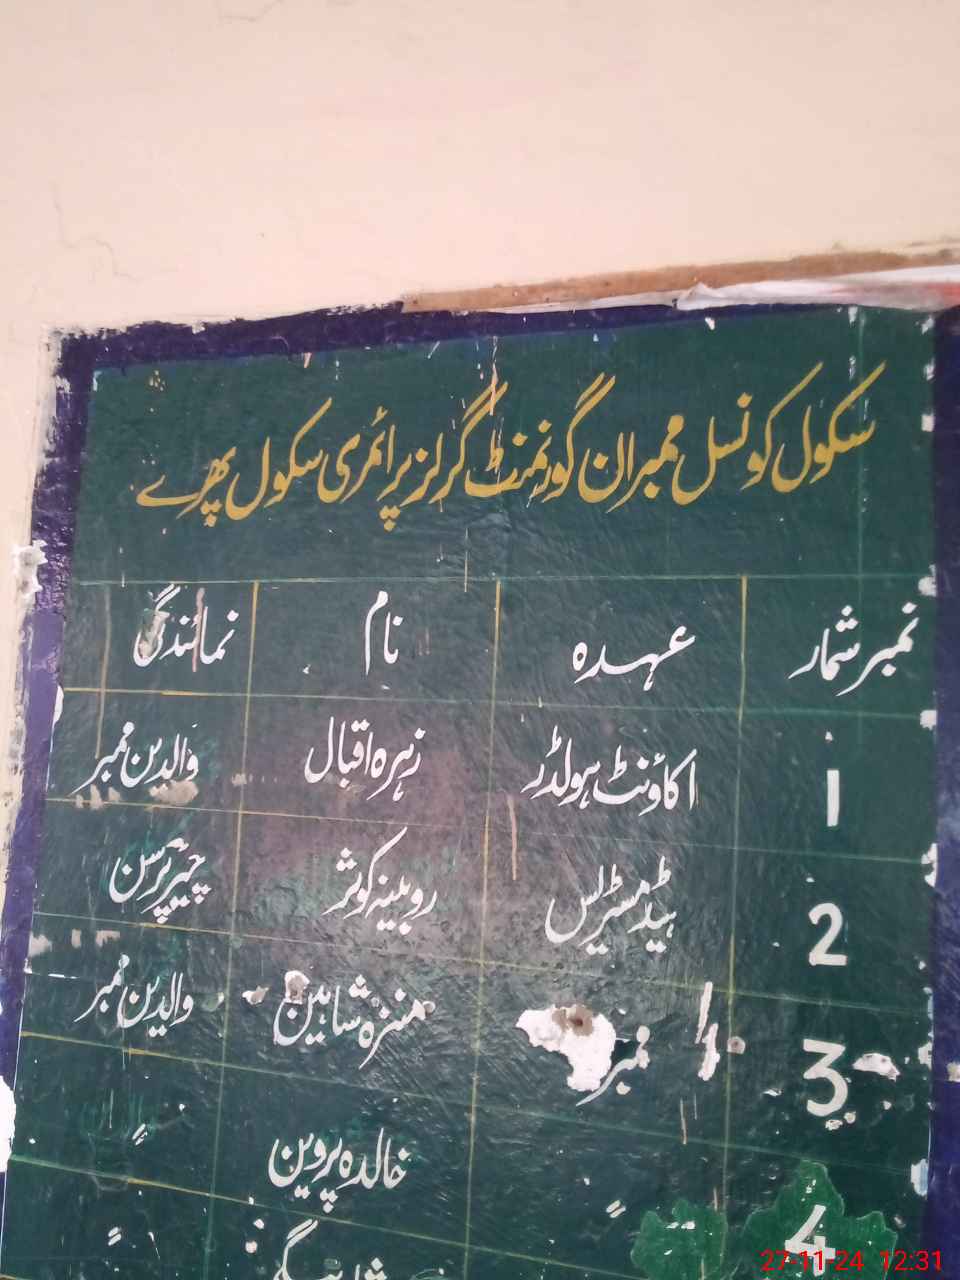 سکول کونسل ممبران گورنمنٹ گرلز پرائمری سکول پھرے
نمبر شمار عہدہ نام نمائندگی
1 اکاؤنٹ ہولڈر زہرہ اقبال والدین ممبر
2 ہیڈ مسٹریس روبینہ کوثر چیئرپرسن
3 ممبر منزہ شاہین والدین ممبر
4 〃 خالدہ پروین 〃
〃
27-11-24 12:31